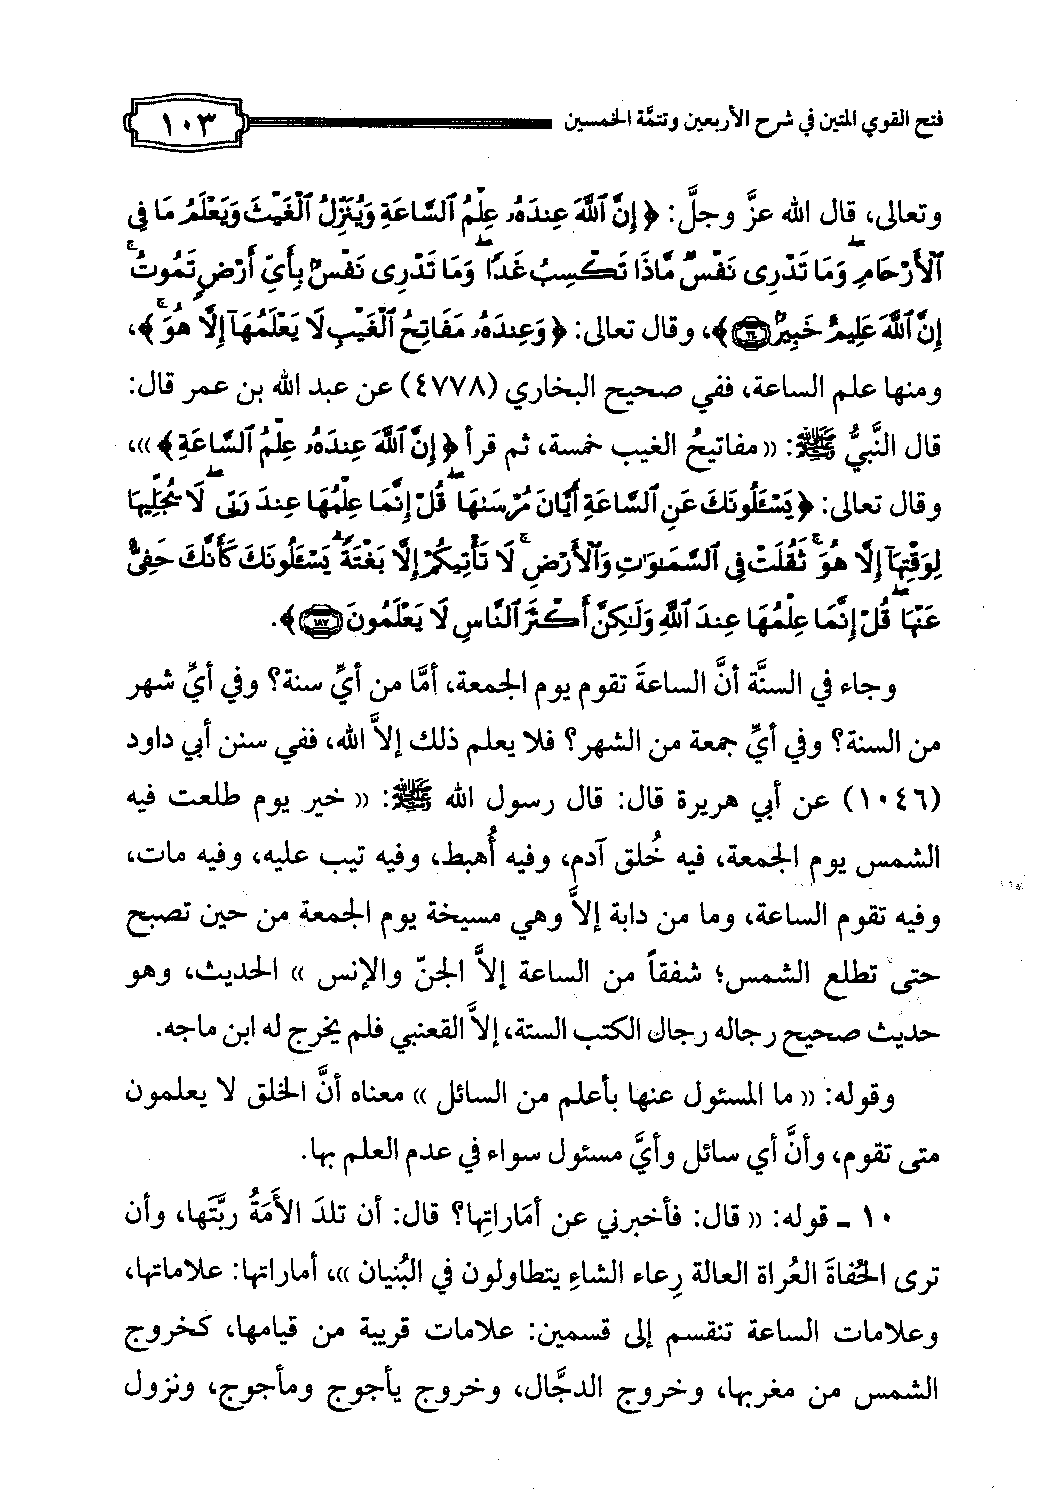 فتح القوي المتين في شرح الأربعين وتتمَّة الخمسين ١٠٣
وتعالى، قال الله عزَّ وجلَّ: ﴿إِنَّ ٱللَّهَ عِندَهُۥ عِلْمُ ٱلسَّاعَةِ وَيُنَزِّلُ ٱلْغَيْثَ وَيَعْلَمُ مَا فِى
ٱلْأَرْحَامِ ۖ وَمَا تَدْرِى نَفْسٌ مَّاذَا تَكْسِبُ غَدًا ۖ وَمَا تَدْرِى نَفْسٌۢ بِأَىِّ أَرْضٍ تَمُوتُ ۚ
إِنَّ ٱللَّهَ عَلِيمٌ خَبِيرٌۢ ﴿٣٤﴾﴾، وقال تعالى: ﴿وَعِندَهُۥ مَفَاتِحُ ٱلْغَيْبِ لَا يَعْلَمُهَآ إِلَّا هُوَ ۚ﴾،
ومنها علم الساعة، ففي صحيح البخاري (٤٧٧٨) عن عبد الله بن عمر قال:
قال النَّبيُّ ﷺ: «مفاتيحُ الغيب خمسة، ثم قرأ ﴿إِنَّ ٱللَّهَ عِندَهُۥ عِلْمُ ٱلسَّاعَةِ﴾»،
وقال تعالى: ﴿يَسْـَٔلُونَكَ عَنِ ٱلسَّاعَةِ أَيَّانَ مُرْسَىٰهَا ۖ قُلْ إِنَّمَا عِلْمُهَا عِندَ رَبِّى ۖ لَا يُجَلِّيهَا
لِوَقْتِهَآ إِلَّا هُوَ ۚ ثَقُلَتْ فِى ٱلسَّمَٰوَٰتِ وَٱلْأَرْضِ ۚ لَا تَأْتِيكُمْ إِلَّا بَغْتَةً ۗ يَسْـَٔلُونَكَ كَأَنَّكَ حَفِىٌّ
عَنْهَا ۖ قُلْ إِنَّمَا عِلْمُهَا عِندَ ٱللَّهِ وَلَٰكِنَّ أَكْثَرَ ٱلنَّاسِ لَا يَعْلَمُونَ ﴿١٨٧﴾﴾.
وجاء في السنَّة أنَّ الساعةَ تقوم يوم الجمعة، أمَّا من أيِّ سنة؟ وفي أيِّ شهر
من السنة؟ وفي أيِّ جمعة من الشهر؟ فلا يعلم ذلك إلاَّ الله، ففي سنن أبي داود
(١٠٤٦) عن أبي هريرة قال: قال رسول الله ﷺ: «خير يوم طلعت فيه
الشمس يوم الجمعة، فيه خُلق آدم، وفيه أُهبط، وفيه تيب عليه، وفيه مات،
وفيه تقوم الساعة، وما من دابة إلاَّ وهي مسيخة يوم الجمعة من حين تصبح
حتى تطلع الشمس؛ شفقاً من الساعة إلاَّ الجنّ والإنس» الحديث، وهو
حديث صحيح رجاله رجال الكتب الستة، إلاَّ القعنبي فلم يخرج له ابن ماجه.
وقوله: «ما المسئول عنها بأعلم من السائل» معناه أنَّ الخلق لا يعلمون
متى تقوم، وأنَّ أي سائل وأيَّ مسئول سواء في عدم العلم بها.
١٠ ـ قوله: «قال: فأخبرني عن أمَاراتِها؟ قال: أن تلدَ الأَمَةُ ربَّتَها، وأن
ترى الحُفاةَ العُراة العالة رِعاء الشاءِ يتطاولون في البُنيان»، أماراتها: علاماتها،
وعلامات الساعة تنقسم إلى قسمين: علامات قريبة من قيامها، كخروج
الشمس من مغربها، وخروج الدجَّال، وخروج يأجوج ومأجوج، ونزول